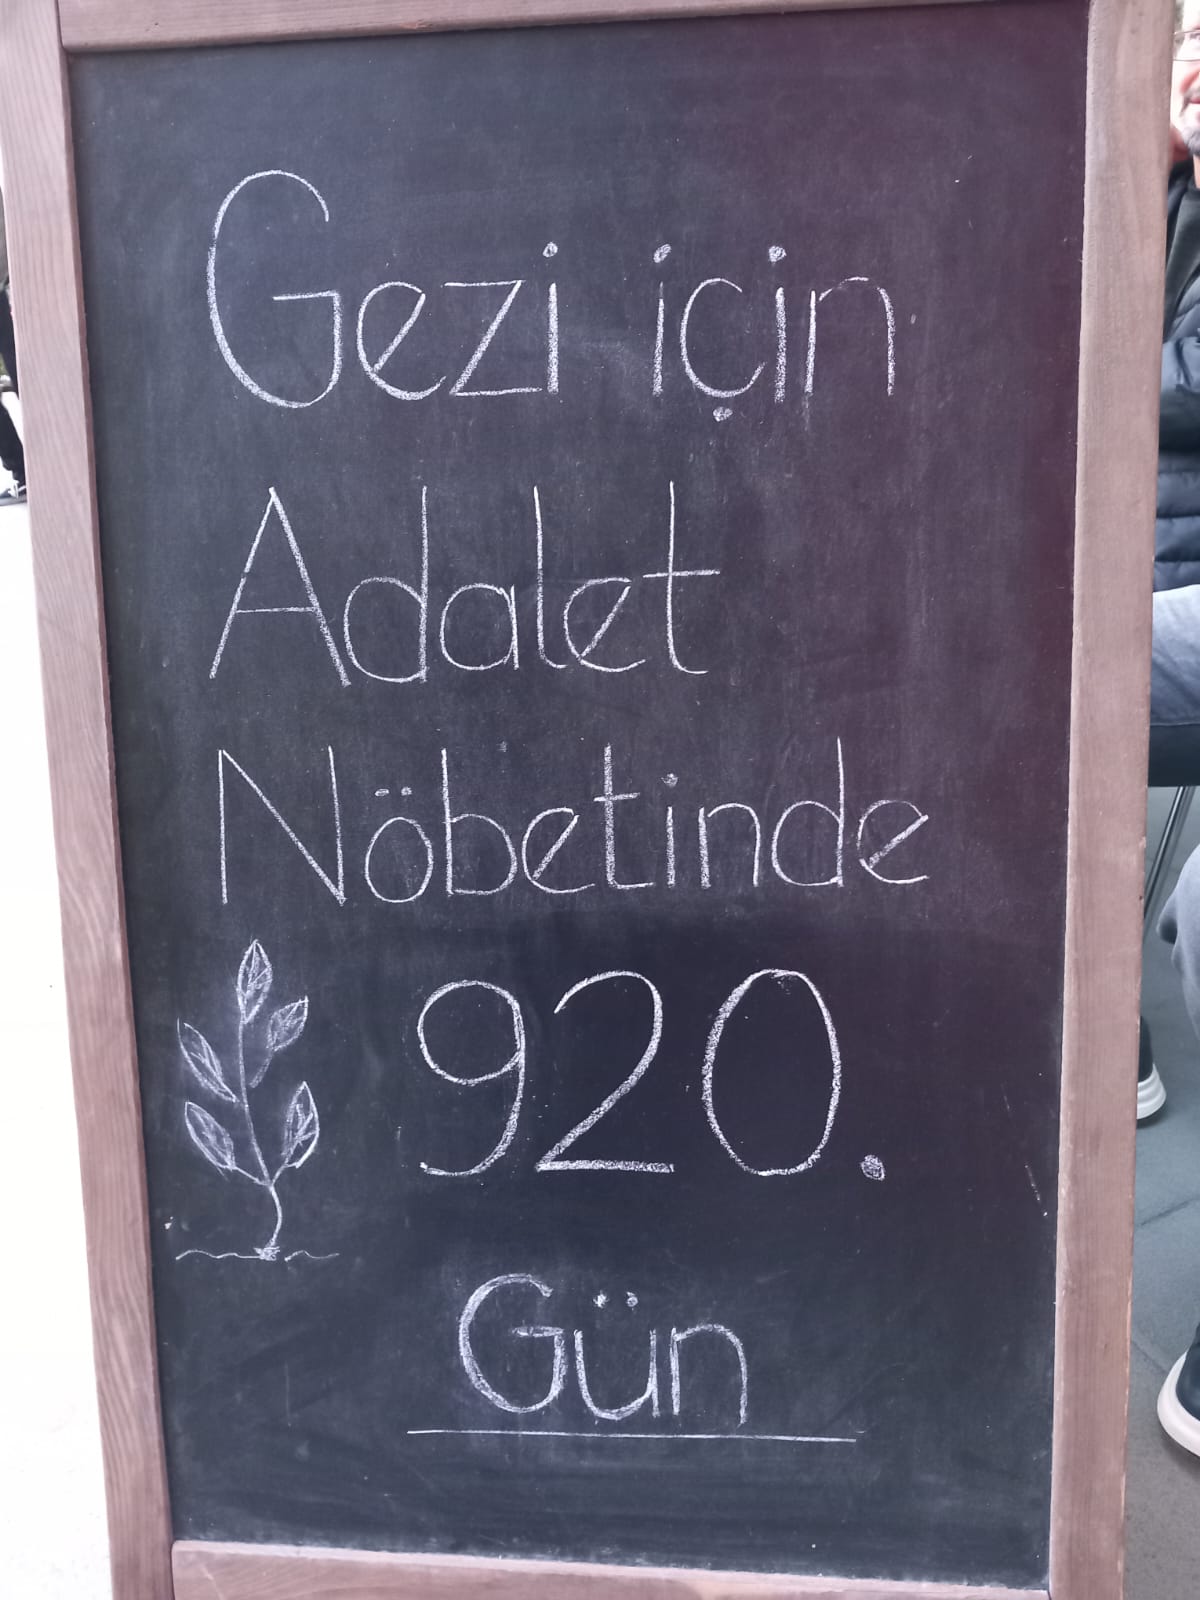 Gezi için
Adalet
Nöbetinde
920.
Gün